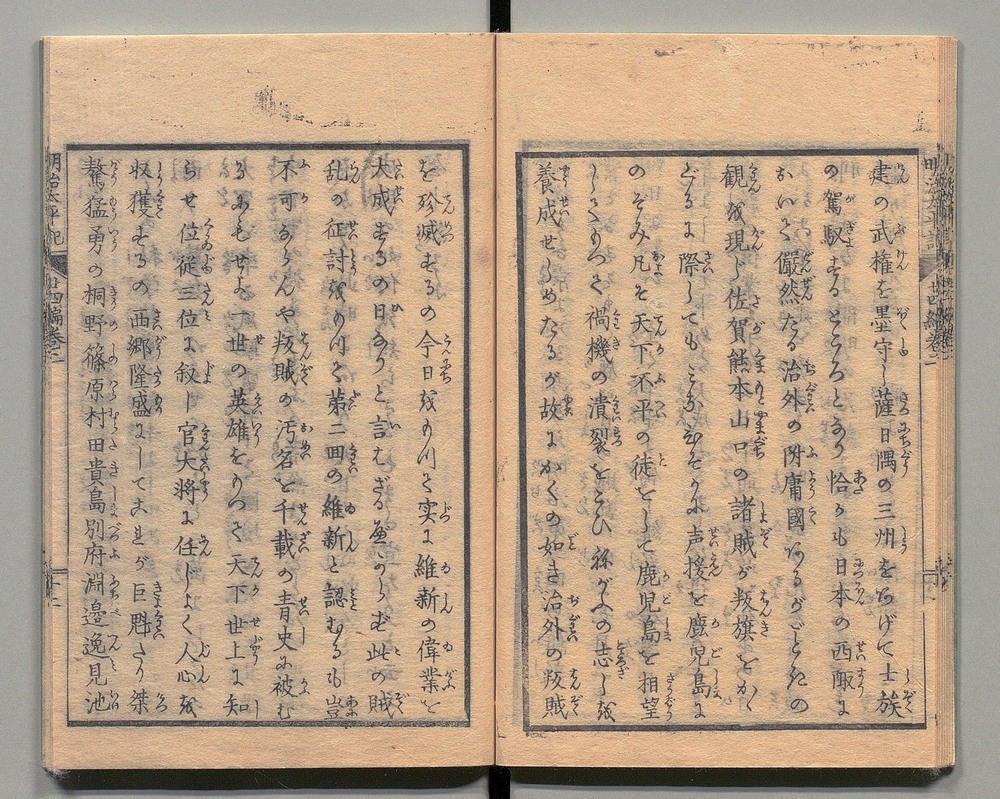 建の武權を墨守し薩日隅の三州をあげて士族
の駕馭するところとなり恰かも日本の西陬に
おいて儼然たる治外の附庸國あるがごときの
観を現し佐賀熊本山口の諸賊が叛旗をかく
ぐるに際しても
声援を鹿児島に
のぞみ凡そ天下不平の徒をして鹿児島を相望
禍機の潰裂を
の志しを
養成せしめたるが故にかくの如き治外の叛賊
を殄滅するの今日をもつて実に維新の偉業を
大成するの日なりと言むざる可からず此の賊
乱の征討をもつて第二回の維新と認むるも豈
不可ならんや叛賊の汚名を千載の青史に被む
るにもせよ一世の英雄をもつて天下世上に知
らせ位従三位に叙し官大将に任じよく人心を
収獲するの西郷隆盛にしてこれが巨魁たり桀
驁猛勇の桐野篠原村田貴島別府淵邉逸見池
明治太平記
廿四編巻之二
明治太平記
廿四編巻之二
十二